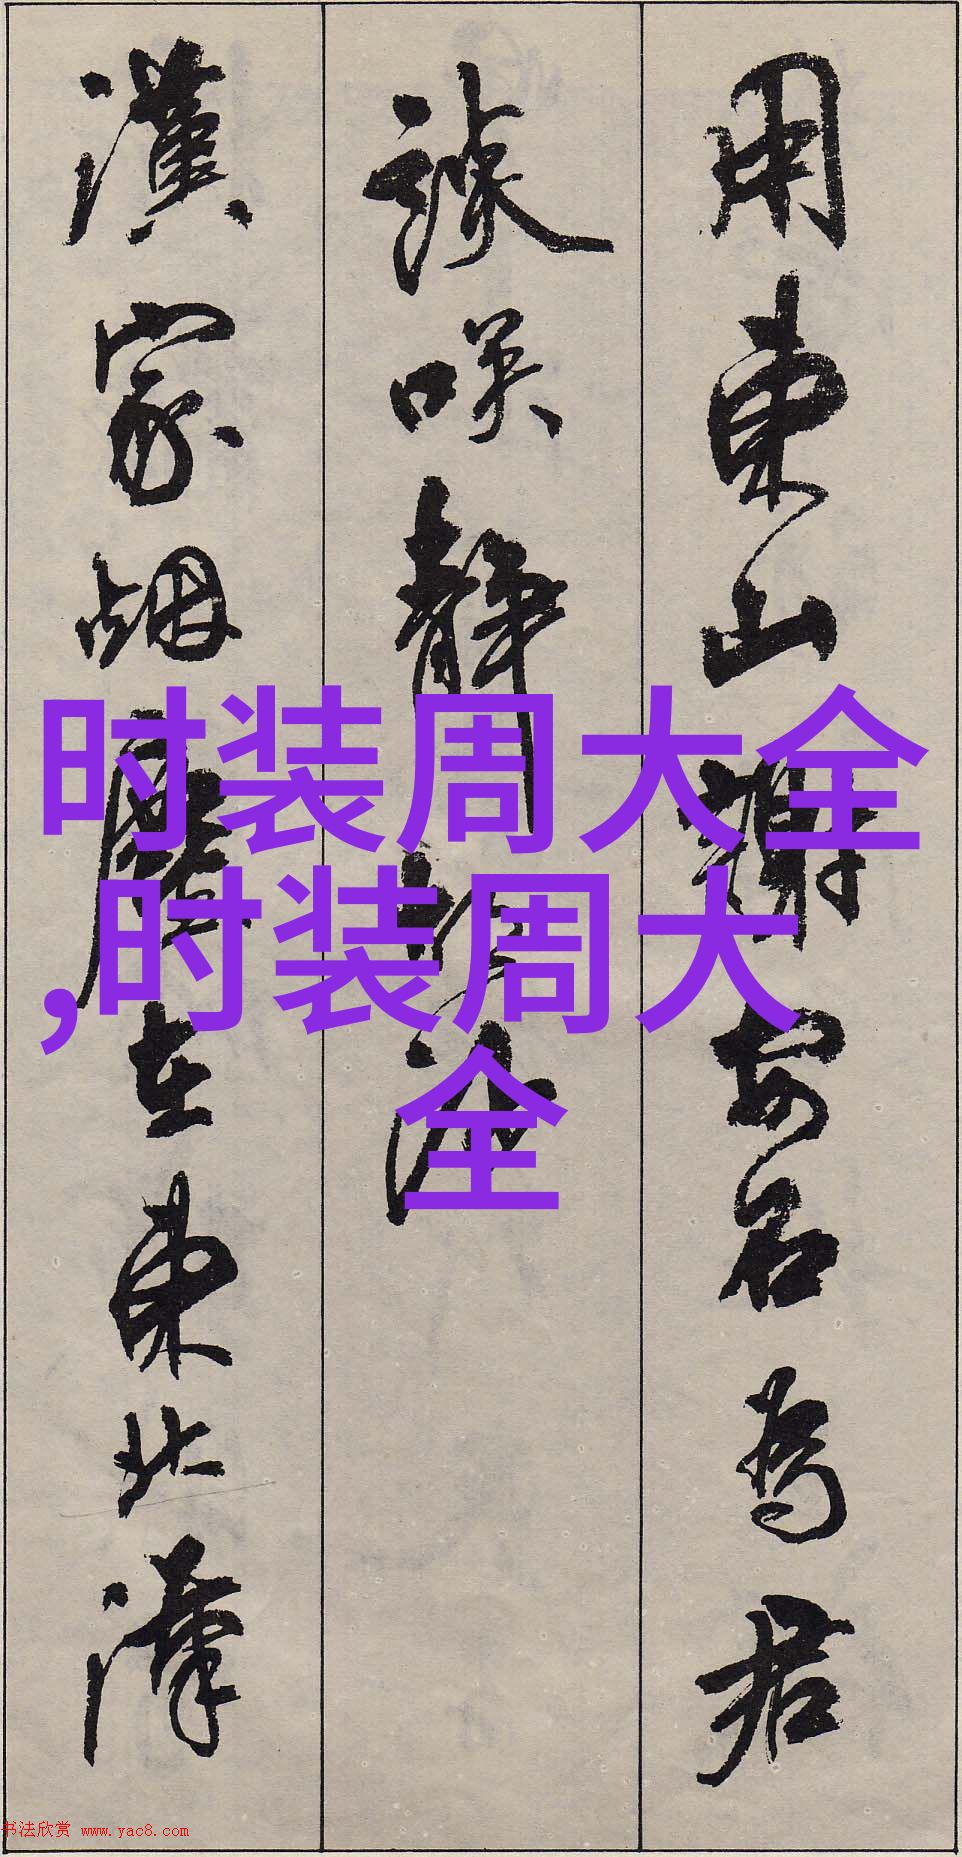 用東山謝安石為君
談咲静胡沙
漢家烟塵在東北漢
时装周大全
,时装周大
全
书法欣赏 www.yac8.com